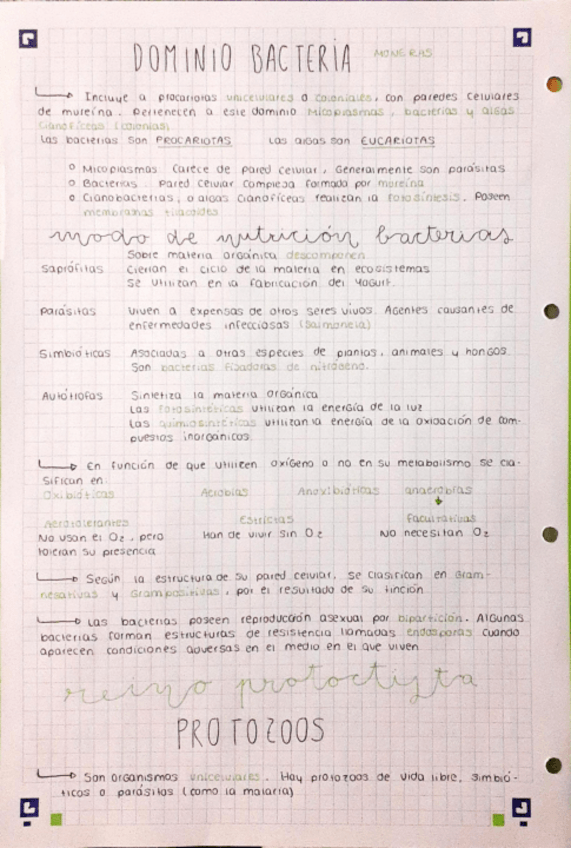 DOMINIO BACTERIA MONERAS
Incluye a procariotas unicelulares o coloniales, con paredes celulares
de mureína. Pertenecen a este dominio Micoplasmas, bacterias y algas
cianofíceas (colonias)
Las bacterias son PROCARIOTAS Las algas son EUCARIOTAS
Micoplasmas. Carece de pared celular, Generalmente son parásitas
Bacterias. Pared celular compleja formada por mureína
Cianobacterias, o algas cianofíceas realizan la fotosíntesis. Poseen
membranas tilacoides
modo de nutrición bacterias
Sobre materia orgánica descomponen
Saprófitas Cierran el ciclo de la materia en ecosistemas
Se utilizan en la fabricación del Yogurt.
Parásitas Viven a expensas de otros seres vivos. Agentes causantes de
enfermedades infecciosas (Salmonela)
Simbióticas Asociadas a otras especies de plantas, animales y hongos.
Son bacterias fijadoras de nitrógeno.
Autótrofas Sintetiza la materia orgánica
Las fotosintéticas utilizan la energía de la luz
Las quimiosintéticas utilizan la energía de la oxidación de com-
puestos inorgánicos
En función de que utilicen oxígeno o no en su metabolismo se cla-
sifican en:
Oxibióticas Aerobias Anoxibióticas anaerobias
Aerotolerantes Estrictas Facultativas
No usan el O2, pero Han de vivir sin O2 No necesitan O2
toleran su presencia
Según la estructura de su pared celular, se clasifican en Gram-
negativas y Grampositivas, por el resultado de su tinción
Las bacterias poseen reproducción asexual por bipartición. Algunas
bacterias forman estructuras de resistencia llamadas endosporas cuando
aparecen condiciones adversas en el medio en el que viven
reino protoctista
PROTOZOOS
Son organismos unicelulares. Hay protozoos de vida libre, simbió-
ticos o parásitos (como la malaria)